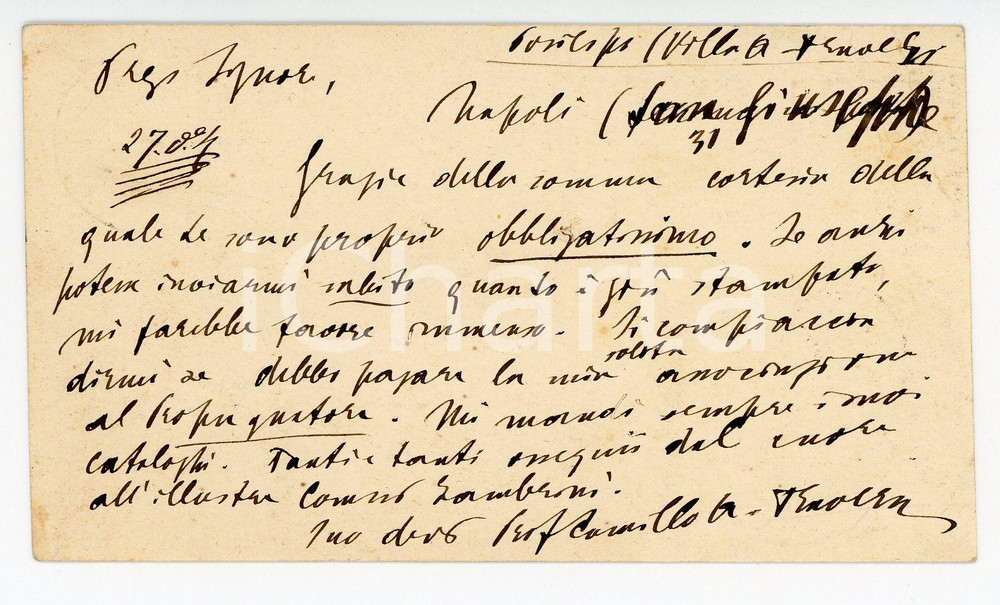 Posilipo (Villa
Preg. Signore,
Napoli (
31
27. d.
Grazie della somma cortesia della
quale Le sono proprio obbligatissimo. Se anzi
potesse inviarmi subito quanto è già stampato,
mi farebbe favore immenso. Si compiaccia
dirmi se debbo pagare la mia associazione
al Propugnatore. Mi mandi sempre i suoi
cataloghi. Tanti e tanti ossequii dal cuore
all'illustre Zambrini.
Suo dev Prof Camillo
iCharta